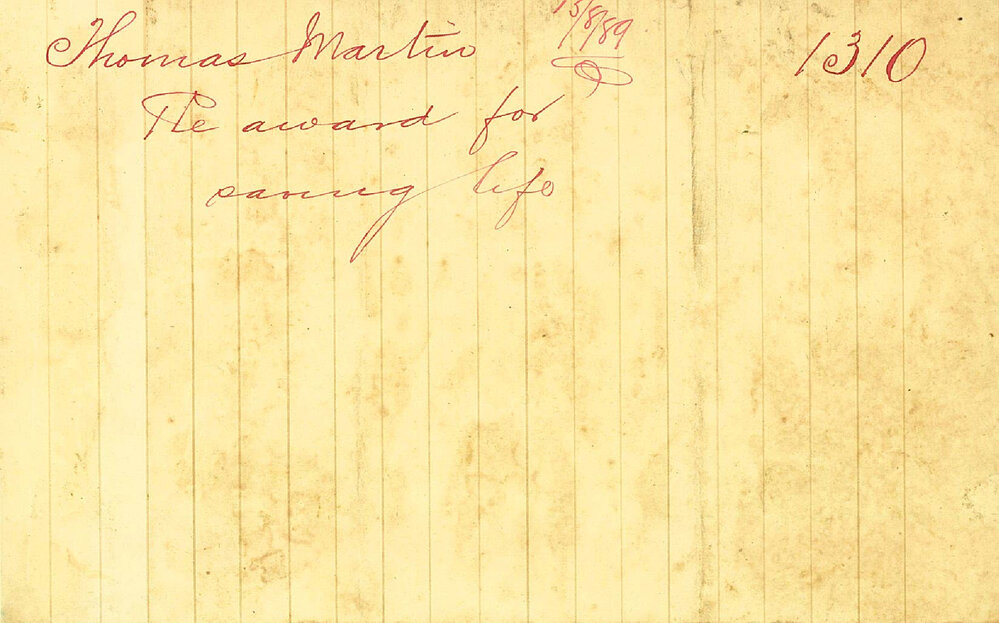 Thomas Martin 13/8/89 1310
The award for
saving life